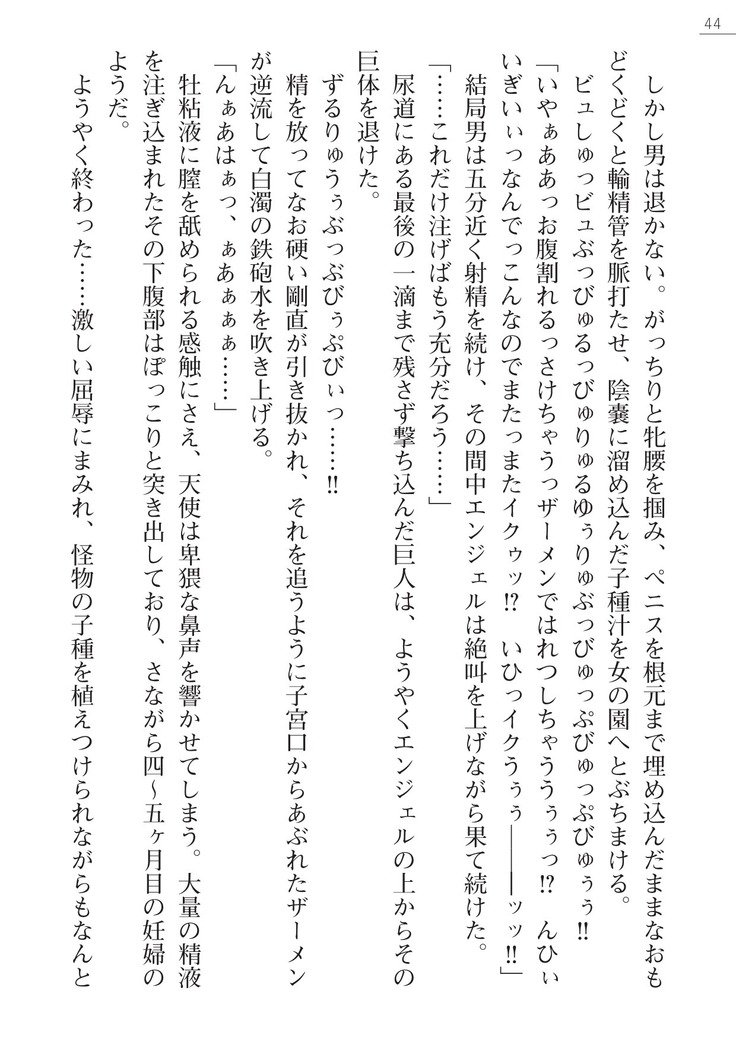 44
　しかし男は退かない。がっちりと牝腰を掴み、ペニスを根元まで埋め込んだままなおも
どくどくと輸精管を脈打たせ、陰嚢に溜め込んだ子種汁を女の園へとぶちまける。
　ビュしゅっビュぶっびゅるっびゅりゅるゆぅりゅぶっびゅっぷびゅっぷびゅぅぅ!!
「いやぁああっお腹割れるっさけちゃうっザーメンではれつしちゃううぅぅっ!?　んひぃ
いぎいぃっなんでっこんなのでまたっまたイクゥッ!?　いひっイクうぅぅ――――ッッ!!」
　結局男は五分近く射精を続け、その間中エンジェルは絶叫を上げながら果て続けた。
「……これだけ注げばもう充分だろう……」
　尿道にある最後の一滴まで残さず撃ち込んだ巨人は、ようやくエンジェルの上からその
巨体を退けた。
　ずるりゅうぅぶっぶびぅぷびぃっ……!!
　精を放ってなお硬い剛直が引き抜かれ、それを追うように子宮口からあぶれたザーメン
が逆流して白濁の鉄砲水を吹き上げる。
「んぁあはぁっ、ぁあぁぁぁ……」
　牡粘液に膣を舐められる感触にさえ、天使は卑猥な鼻声を響かせてしまう。大量の精液
を注ぎ込まれたその下腹部はぽっこりと突き出しており、さながら四〜五ヶ月目の妊婦の
ようだ。
　ようやく終わった……激しい屈辱にまみれ、怪物の子種を植えつけられながらもなんと